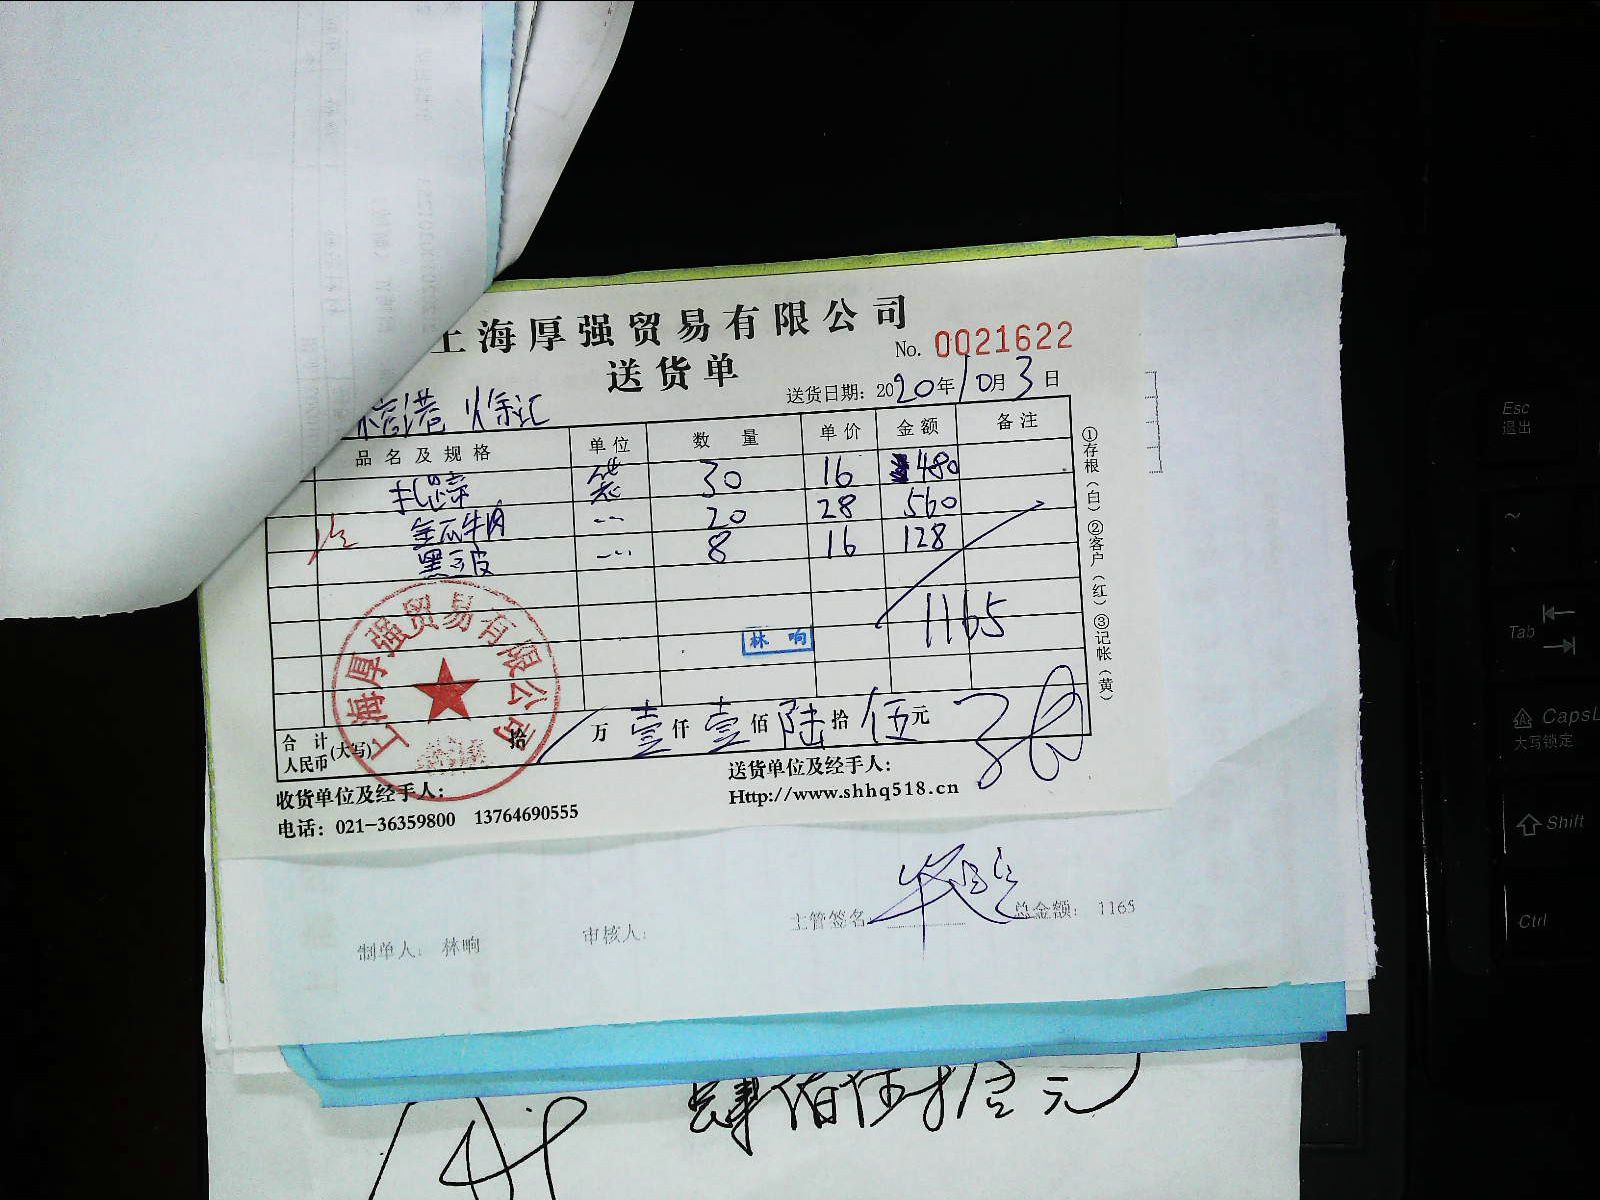 上海厚强贸易有限公司
No. 0021622
送货单
送货日期：2020年10月3日
品名及规格 单位 数量 单价 金额 备注
扎蹄 袋 30 16 480
金瓜牛肉 〃 20 28 560
黑 皮 〃 8 16 128
1165
林响
上海厚强贸易有限公司
合计人民币(大写) 拾 万 壹仟壹佰陆拾伍元
收货单位及经手人：
送货单位及经手人：
电话：021-36359800 13764690555
Http://www.shhq518.cn
①存根（白）②客户（红）③记帐（黄）
制单人：林响 审核人： 主管签名 总金额：1165
肆佰伍拾 元
Esc
退出
~
Tab
CapsL
大写锁定
Shift
Ctrl